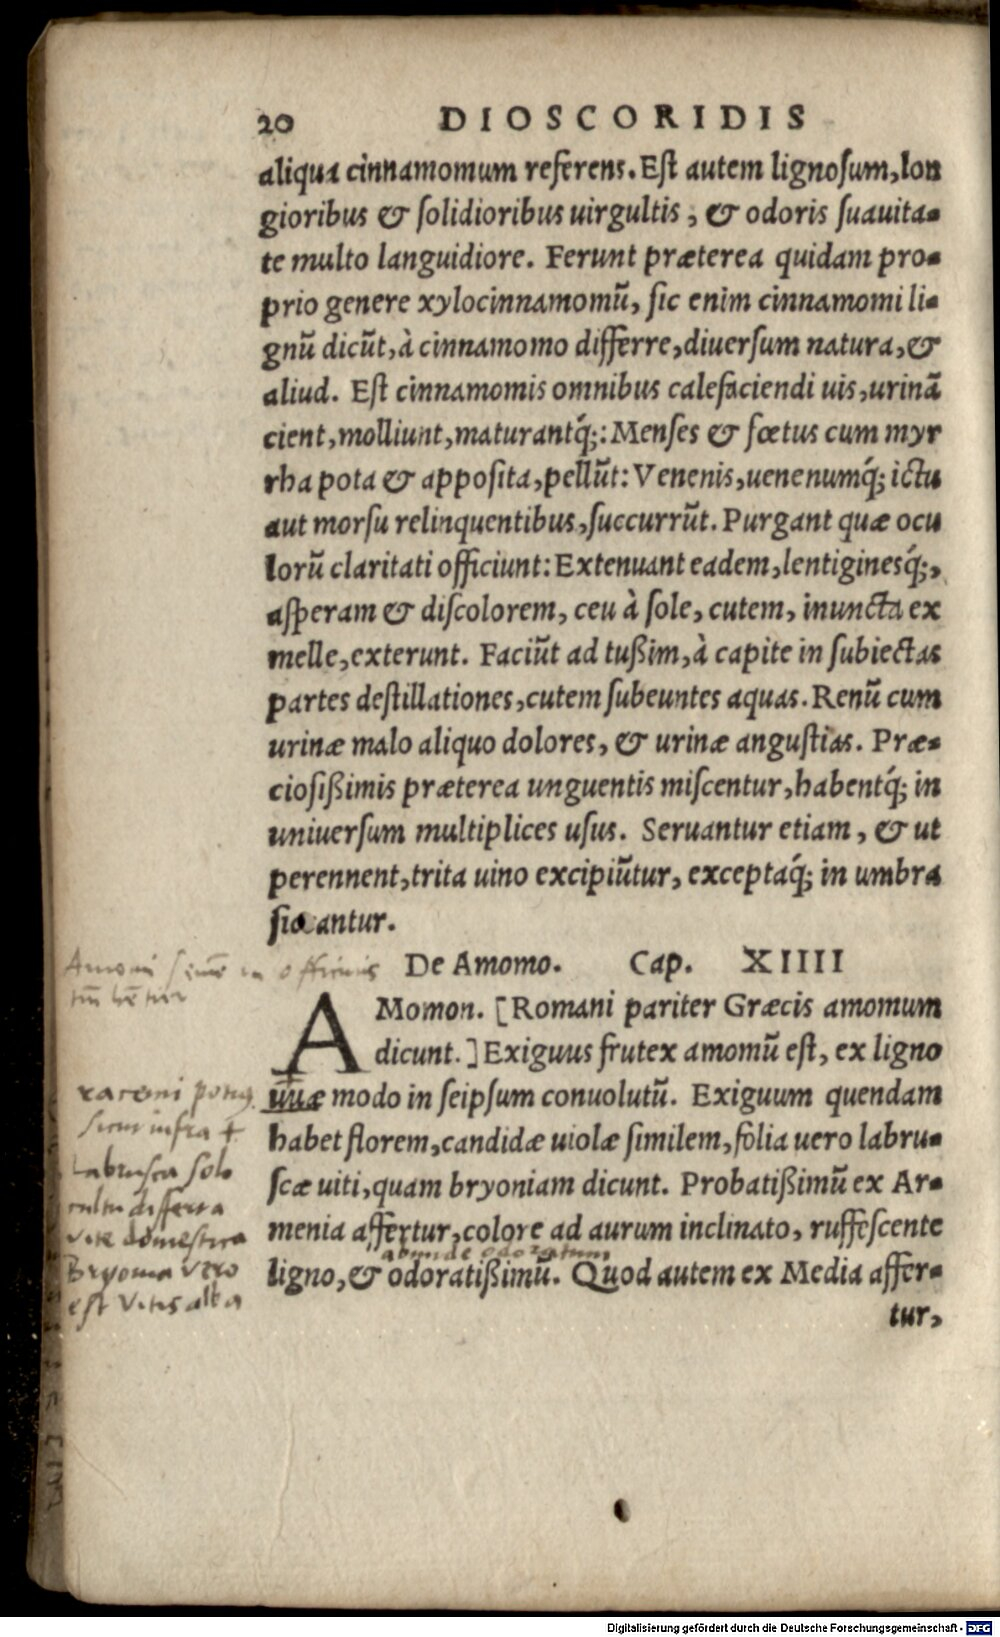 20 DIOSCORIDIS
aliqua cinnamomum referens. Est autem lignosum, lon
gioribus & solidioribus uirgultis, & odoris suauita-
te multo languidiore. Ferunt præterea quidam pro-
prio genere xylocinnamomũ, sic enim cinnamomi li-
gnũ dicũt, à cinnamomo differre, diuersum natura, &
aliud. Est cinnamomis omnibus calefaciendi uis, urinã
cient, molliunt, maturantq́;: Menses & fœtus cum myr
rha pota & apposita, pellũt: Venenis, uenenumq́; ictu
aut morsu relinquentibus, succurrũt. Purgant quæ ocu
lorũ claritati officiunt: Extenuant eadem, lentiginesq́;,
asperam & discolorem, ceu à sole, cutem, inuncta ex
melle, exterunt. Faciũt ad tußim, à capite in subiectas
partes destillationes, cutem subeuntes aquas. Renũ cum
urinæ malo aliquo dolores, & urinæ angustias. Præ-
ciosißimis præterea unguentis miscentur, habentq́; in
uniuersum multiplices usus. Seruantur etiam, & ut
perennent, trita uino excipiũtur, exceptaq́; in umbra
siccantur.
Amomi in officinis
De Amomo. Cap. XIIII
AMomon. [Romani pariter Græcis amomum
dicunt.] Exiguus frutex amomũ est, ex ligno
uuæ modo in seipsum conuolutũ. Exiguum quendam
habet florem, candidæ uiolæ similem, folia uero labru-
scæ uiti, quam bryoniam dicunt. Probatißimũ ex Ar-
menia affertur, colore ad aurum inclinato, ruffescente
abunde odoratum
ligno, & odoratißimũ. Quod autem ex Media affer-
tur,
racemi
sicut infra +
Labrusca solo
cultu differta
vite domestica
Bryonia vero
est Vitis alba
Digitalisierung gefördert durch die Deutsche Forschungsgemeinschaft - DFG